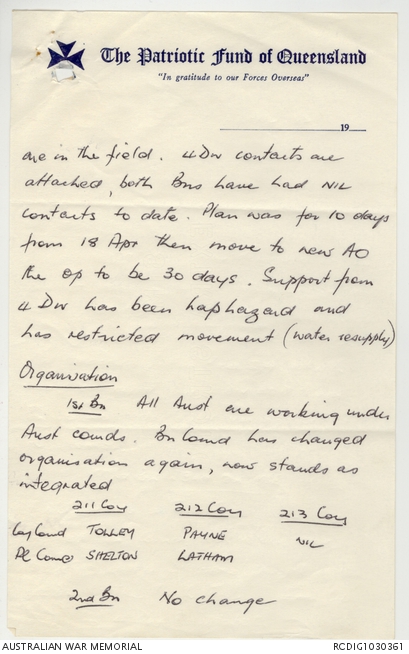 The Patriotic Fund of Queensland
"In gratitude to our Forces Overseas"
19
are in the field. 4 Div contacts are
attached, both Bns have had NIL
contacts to date. Plan was for 10 days
from 18 Apr then move to new AO
the op to be 30 days. Support from
4 Div has been haphazard and
has restricted movement (water resupply)
Organisation
1st Bn All Aust are working under
Aust comds. Bn Comd has changed
organisation again, now stands as
integrated
211 Coy 212 Coy 213 Coy
Coy Comd TOLLEY PAYNE NIL
Pl Comd SHELTON LATHAM
2nd Bn No change
AUSTRALIAN WAR MEMORIAL RCDIG1030361